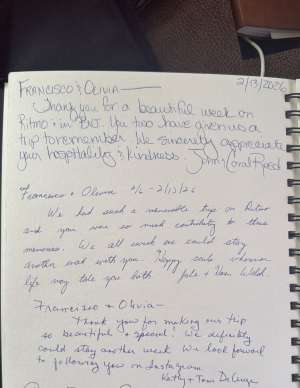 FRANCISCO & OLIVIA — 2/13/2026
Thank you for a beautiful week on
Ritmo & in BVI. You two have given us a
trip to remember. We sincerely appreciate
your hospitality & kindness. John & Carol
Francisco + Olivia 2/6 - 2/13/26
We had such a memorable trip on Ritmo
and you were so much contributing to those
memories. We all wish we could stay
another week with you. Happy sails wherever
life may take you both.
Francisco & Olivia -
Thank you for making our trip
so beautiful & special! We definitely
could stay another week. We look forward
to following you on Instagram.
Kathy + Tom